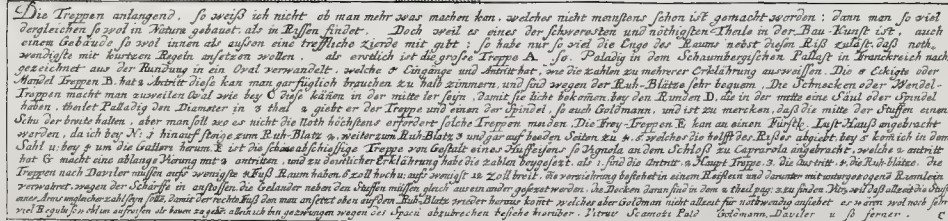 Die Treppen anlangend, so weiß ich nicht ob man mehr was machen kan, welches nicht menistens schon ist gemacht worden: dann man so viel
dergleichen so wol in Natura gebauet als in Rissen findet. Doch weil es eines der schweresten und nöthigsten Theile in der Bau-Kunst ist, auch
einem Gebäude so wol innen als aussen eine treffliche Zierde mit gibt: so habe nur so viel die Enge des Raums nebst diesen Riß zuläst, daß noth-
wendigste mit kurtzen Regeln ansetzen wollen. als erstlich ist die große Treppe A. so Paladig in dem Schaumbergischen Pallast in Franckreich nach
gezeichnet aus der Rundung in ein Oval verwandelt, welche 4 Eingänge und Antritt hat, wie die zahlen zu mehrerer Erklährung ausweissen. Die 8 Eckigte oder
Mandel Treppen B. hat 2 Antritt diese kan man gar füglich brauchen zu halb zimmern, und sind wegen der Ruh-Blätze sehr bequem, Die Schnecken oder Wendel-
Treppen macht man zuweilen Oval wie bey C diese können in der mitte leer seyn, damit sie licht bekommen bey den Runden D, da in der mitte eine Säul oder Spindel
haben, theilet Palladig den Diameter in 3 theil 2 giebt er der Treppe und einen der Spindel, so auch Goldmann, und ist zu mercken, daß die mitte der Stuffen einen
Schu der breite halten, aber man soll wo es nicht die Noth höchstens erfordert solche Treppen meiden. Die Frey-Treppen E kan an einen Fürstl. Lust-Hauß angebracht
werden, da ich bey N: 1 hinauf steige zum Ruh-Blatz 2, weiter zum Ruh-Blatz 3 und gar auf beeden Seiten zu 4, welches die helfft des Rißes abgiebt, bey 5 kom ich in dem
Sahl u: bey 6 um die Gallery herum. F ist die schöne abschießige Treppe von Gestalt eines Huffeisens so Vignola an dem Schloß zu Caprarola angebracht, welche 2 antritt
hat G macht eine ablange Vierung mit 2 antritten, und zu deutlicher Erklährung habe die zahlen beygesezt, als 1. sind die Antritt, 2 Haupt Treppe, 3. die Austritt, 4. die Ruh-blätze. Die
Treppen nach Daviler müssen aufs wenigste 4 Fuß Raum haben, 6 zoll hoch u: aufs wenigst 12 zoll breit, die verziehrung bestehet in einem Reiflein und darunter mit untergezogenen Riemlein
verwahret, wegen der Schärffe in anstossen, die Geländer neben den Stuffen müssen gleich aus einander gesezet werden, die Decken daran sind in dem 2 theil pag: zu finden. Vitruv will daß allezeit die Stuffen
eines Arms ungleicher zahl seyn solle, damit der rechte Fuß den man ansetzt oben auf dem Ruh-Blatz wieder heraus komt welches aber Goldman nicht allezeit für nothwendig ansiehet es wären wol noch sehr
viel Reguln so wol im aufreissen als bauen zu geben allein ich bin gezwungen wegen des Spacii abzubrechen besiehe hierüber. Vitruv Scamozi Palad Goldmann, Daviler u: so ferner.